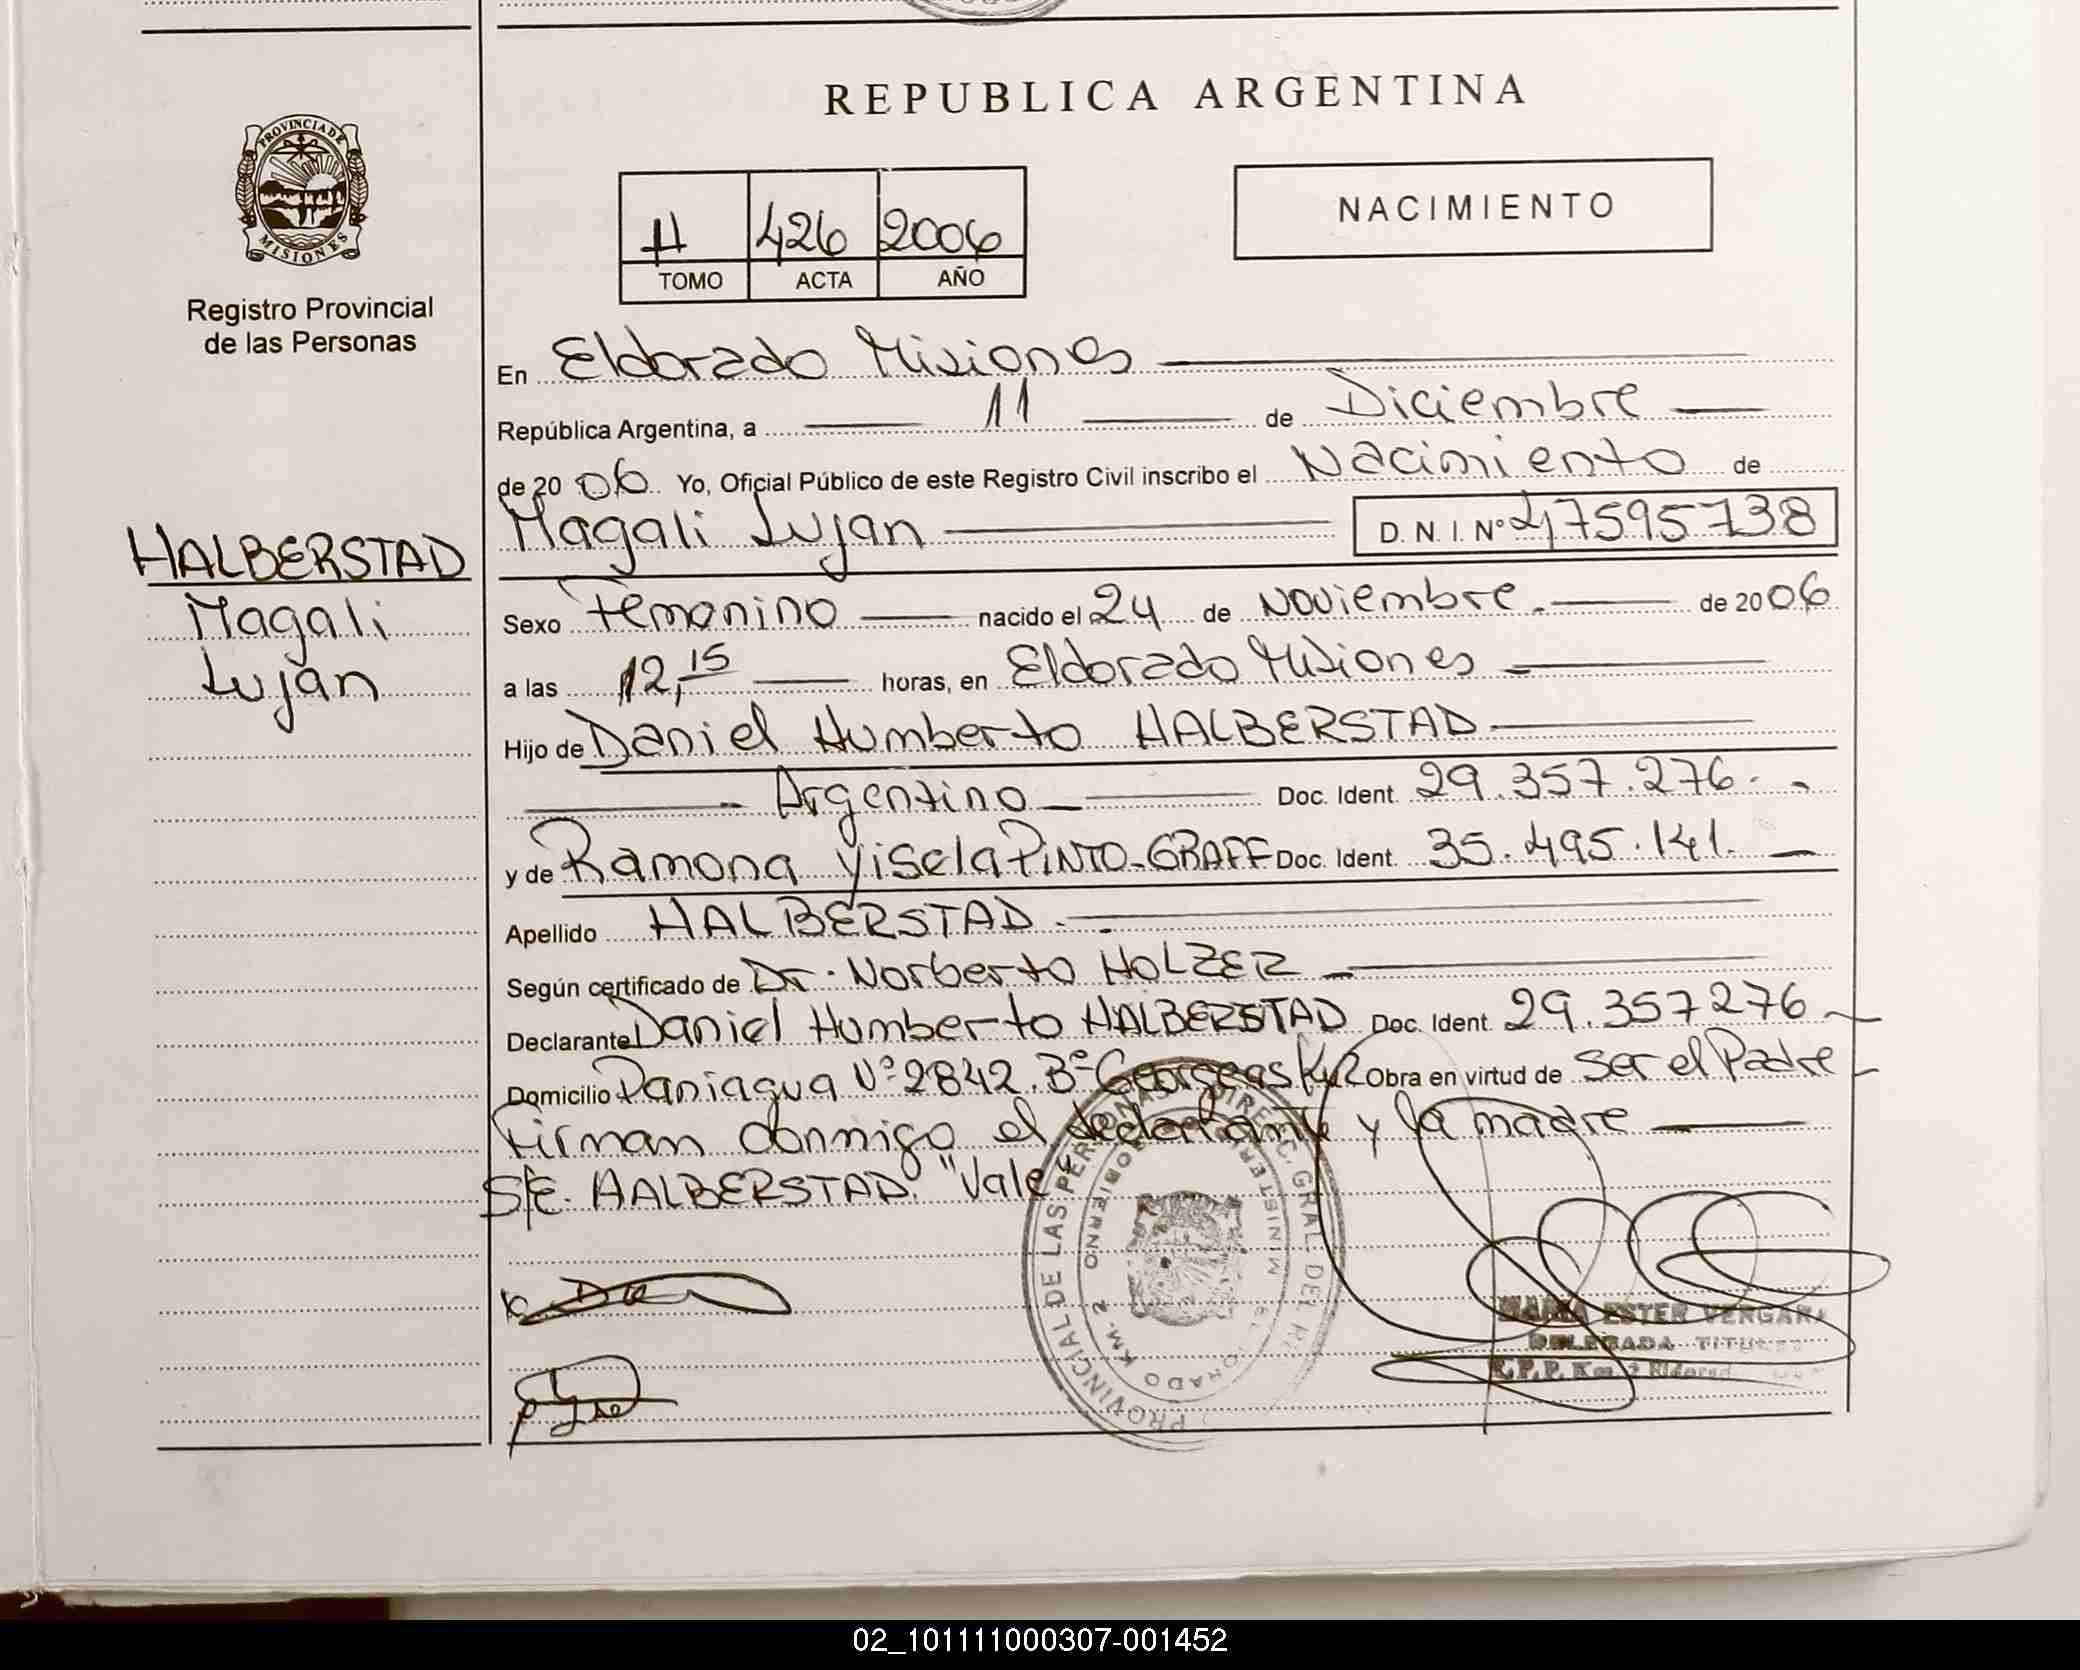 REPUBLICA ARGENTINA
PROVINCIA DE MISIONES
Registro Provincial
de las Personas
H 426 2006
TOMO ACTA AÑO
NACIMIENTO
En Eldorado Misiones
República Argentina, a 11 de Diciembre
de 2006 Yo, Oficial Público de este Registro Civil inscribo el Nacimiento de
Magali Lujan D.N.I. Nº 47595738
HALBERSTAD
Magali
Luján
Sexo Femenino nacido el 24 de Noviembre de 2006
a las 12,15 horas, en Eldorado Misiones
Hijo de Daniel Humberto HALBERSTAD
Argentino Doc. Ident. 29.357.276.
y de Ramona Yisela PINTO-GRAFF Doc. Ident. 35.495.141.
Apellido HALBERSTAD.
Según certificado de Dr. Norberto HOLZER
Declarante Daniel Humberto HALBERSTAD Doc. Ident. 29.357276
Domicilio Paniagua Nº 2842. Bº Obra en virtud de ser el Padre
Firman conmigo el declarante y la madre
S/E. HALBERSTAD. "Vale"
PROVINCIAL DE LAS PERSONAS DIREC. GRAL. DEL
MINISTER GOBIERNO
ELDORADO KM. 2
MARIA ESTER VERGARA
DELEGADA TITULAR
R.P.P. Km. 2 Eldorado
02_101111000307-001452